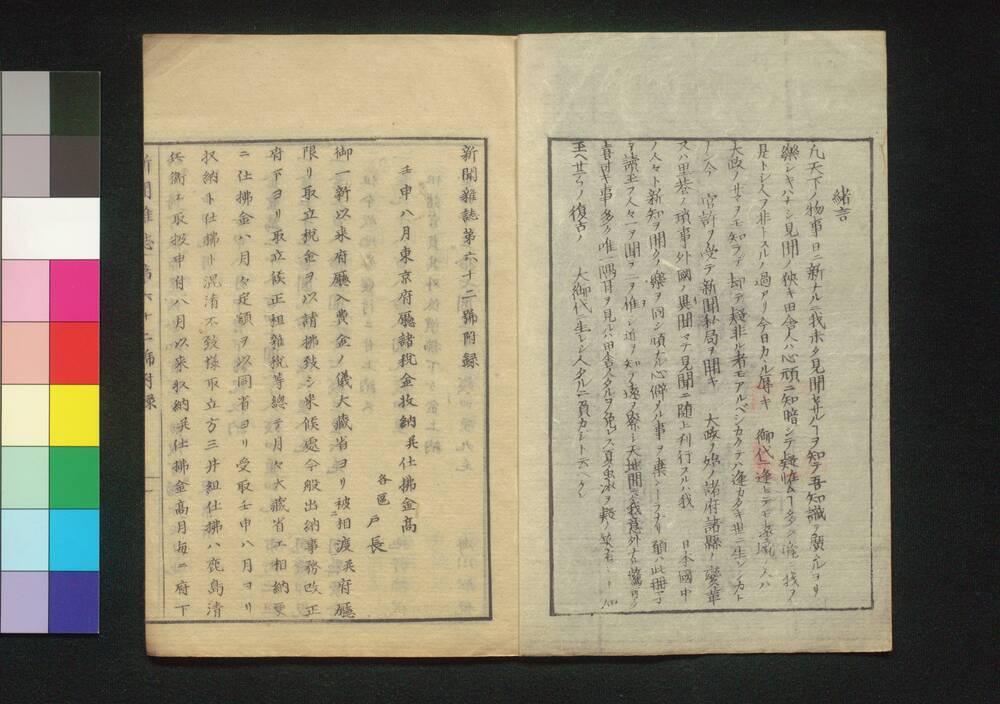 緒言
凡天下ノ物事日ニ新ナルニ我未タ見聞セサルヿヲ知テ吾知識ヲ廣ムルヨリ
樂シキハナシ見聞ノ狹キ田舎人ハ心頑ニ知暗シテ
見トシ人ヲ非トスルノ過アリ今日カヽル辱キ 御代ニ逢ヒテモ
大政ノサマヲモ知ラテ却テ疑非ル者モアルベシカクテハ逢カタキ世ニ生レシカヒ
今 官許ヲ受テ新聞私局ヲ開キ 大政ヲ始ノ諸府諸縣ノ變革
又ハ里巷ノ瑣事外國ノ異聞マテ見聞ニ随上刊行スルハ我 日本國中
ノ人々ト新知ヲ開クノ樂ヲ同シ頑ナル心僻メル事ヲ棄シ 願ハ此冊
ヲ讀玉フ人々一ヲ聞テ二ヲ推シ近ヲ知テ遠ヲ察シ天地間
喜フヘキ事多キ唯一隅耳ヲ見ルハ田舎人タルヲ免レス
玉ヘ 復古ノ 大御代ニ生レシ人タルニ負カシトテヘカシ
新聞雜誌第六十二號附録
壬申八月東京府廳諸税金收納幷仕拂金高
各區 戸長
御一新以来府廳入費金ノ儀大藏省ヨリ被相渡幷府廳
限リ取立税金ヲ以請拂致シ来候處今般出納事務改正
府下ヨリ取立候正租雜税等總テ月々大藏省エ相納更
ニ仕拂金八月々定額ヲ以同省ヨリ受取壬申八月ヨリ
収納ト仕拂ト混淆不致様取立方三井組仕拂ハ鹿島清
兵衛エ取扱申付八月以来収納幷仕拂金高月毎ニ府下
新聞雜誌第六十二號附録